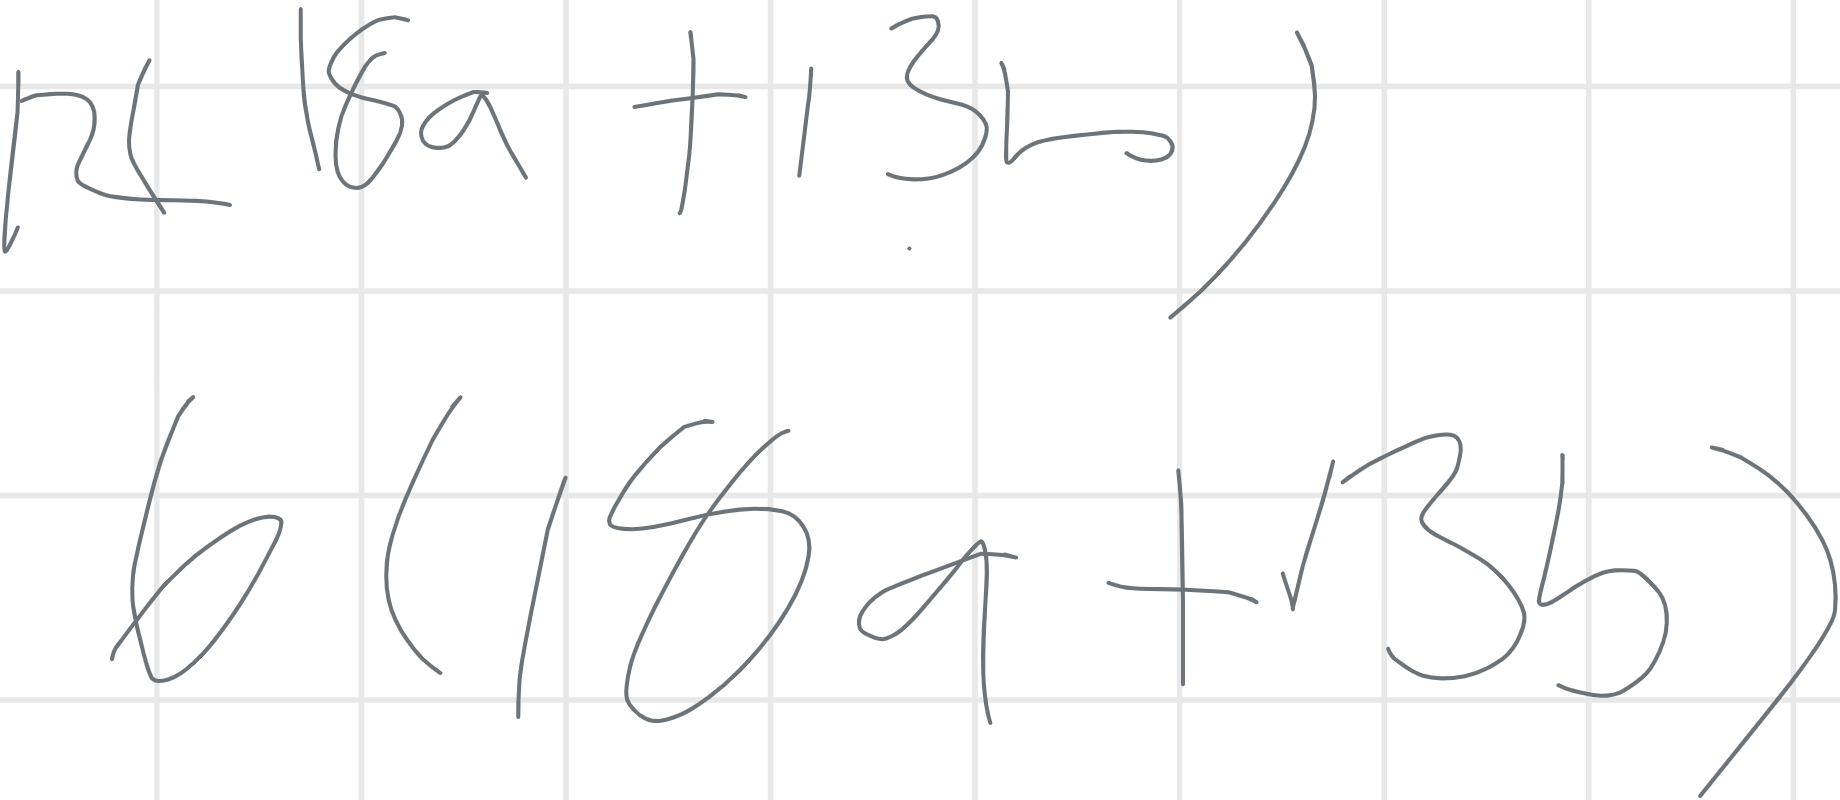 12(18a+13b)
6(18a+13b)